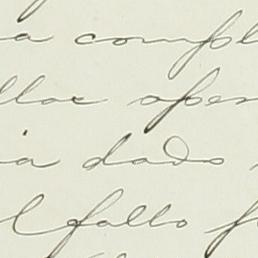 a compl
llac apen
ia dado
l fallo f